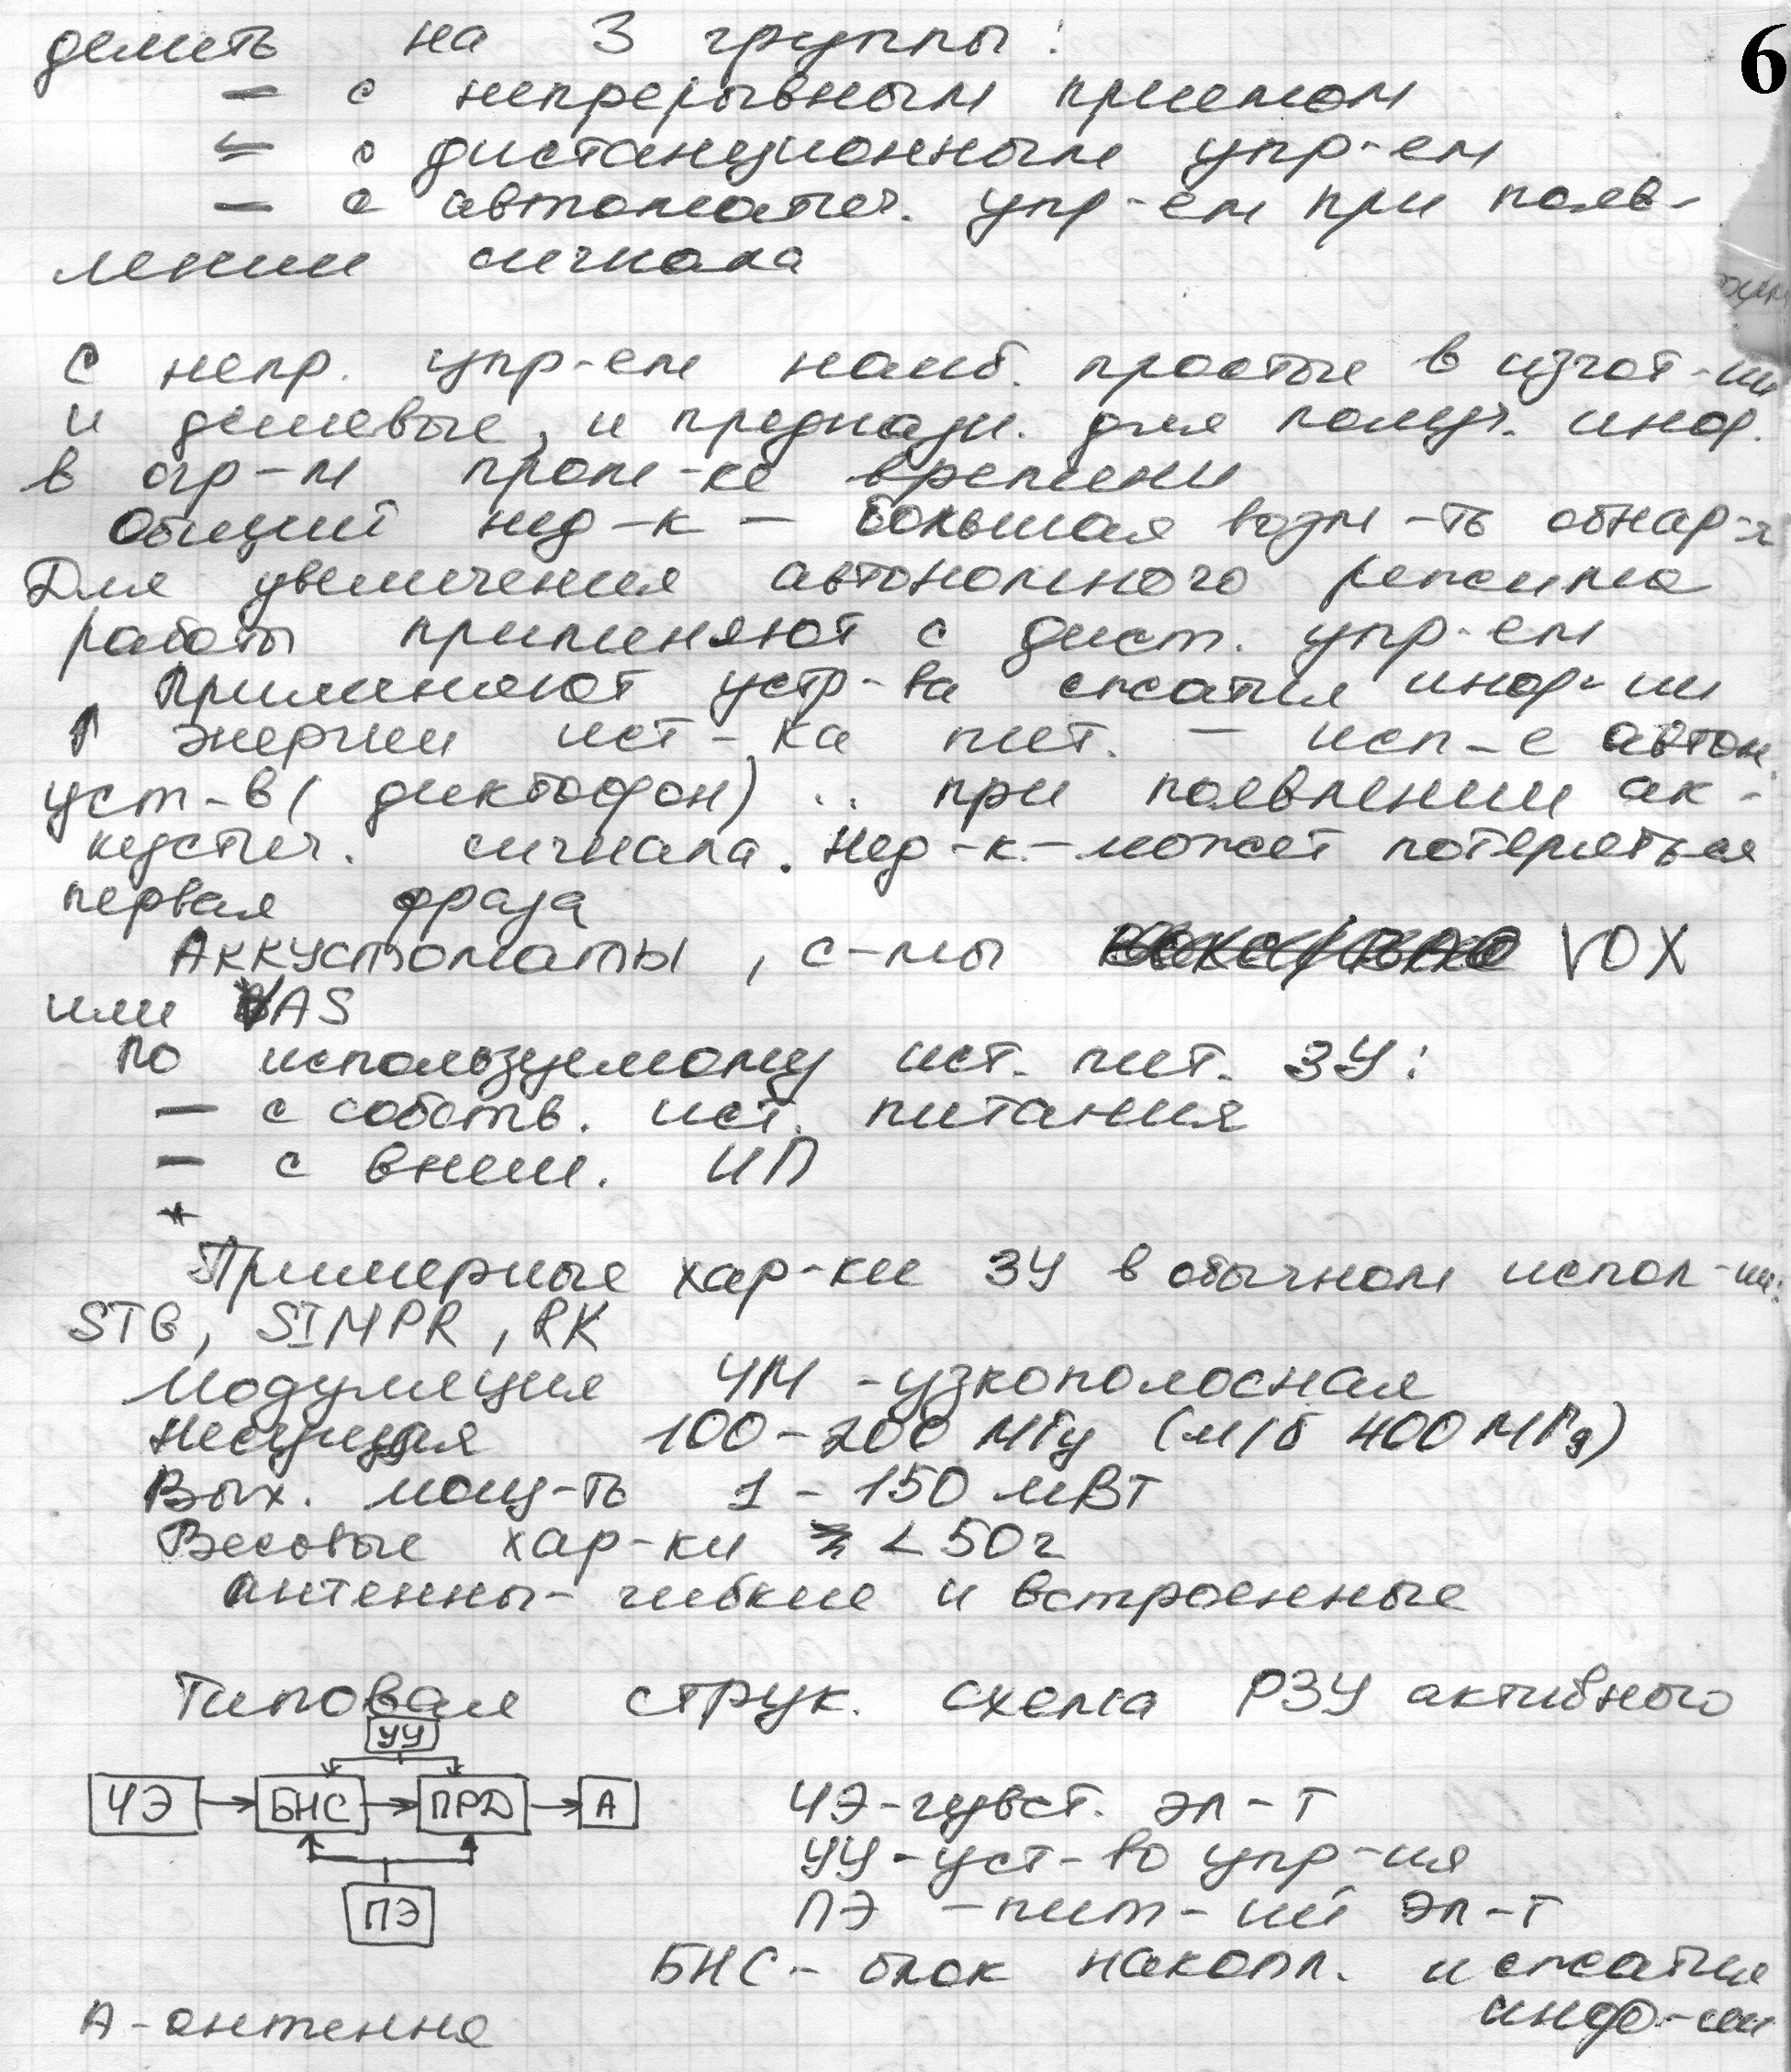 6
делить на 3 группы:
– с непрерывным приемом
– с дистанционным упр-ем
– с автоматич. упр-ем при появ-
лении сигнала
С непр. упр-ем наиб. простые в изгот-ии
и дешевые, и предназн. для получ. инф.
в огр-м пром-ке времени
Общий нед-к – большая возм-ть обнар-я
Для увеличения автономного режима
работы применяют с дист. упр-ем
Применяют устр-ва сжатия инфор-ии
↑ энергии ист-ка пит. – исп-е автом.
уст-в (диктофон) .. при появлении ак-
кустич. сигнала. Нед-к – может потеряться
первая фраза
Аккустоматы, с-мы VOX
или VAS
По используемому ист. пит. ЗУ:
– с собств. ист. питания
– с внеш. ИП
Примерные хар-ки ЗУ в обычном испол-ии:
STG, SIMPR, RK
Модуляция ЧМ – узкополосная
Несущая 100–200 МГц (м/б 400 МГц)
Вых. мощ-ть 1 – 150 мВт
Весовые хар-ки < 50 г
Антенны – гибкие и встроенные
Типовая струк. схема РЗУ активного
УУ
ЧЭ БНС ПРД А
ПЭ
ЧЭ – чувст. эл-т
УУ – уст-во упр-ия
ПЭ – пит-ий эл-т
БНС – блок накопл. и сжатия
инфо-ии
А – антенна